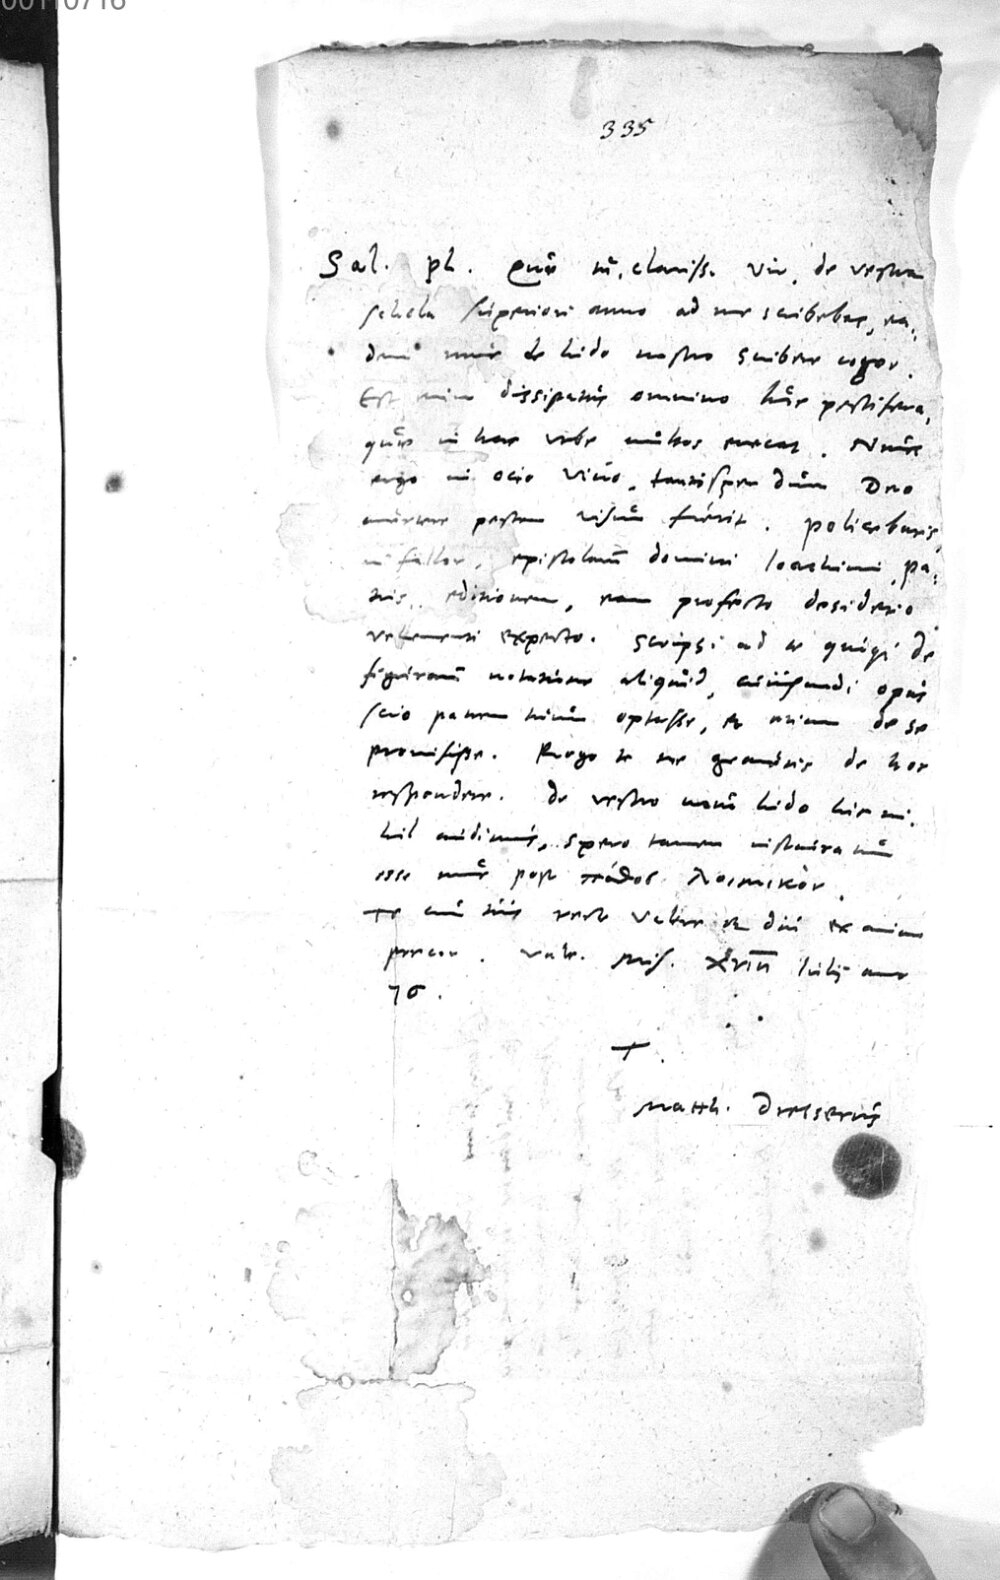 00110716
335
Sal. pl. Quae tu, clariss. vir, de vestra
schola superiori anno ad me scribebas, ea,
dem nunc de ludo nostro scribere cogor.
Est enim dissipatus omnino lue pestifera,
quae in hac urbe multos enecat. Nunc
ergo in ocio vivo, tantisper dum Deo
avertere pestem visum fuerit. Policebaris,
ni fallor, epistolarum domini Ioachimi, pa,
tris, editionem, eam profecto desiderio
vehementi expecto. Scripsi ad te quiqz de
figurarum notatione aliquid, cuiusmodi opus
scio patrem tuum optasse, et etiam de se
promisisse. Rogo te ne graveris de hoc
respondere. De vestro novo ludo hic ni,
hil audimus, spero tamen instauratum
esse nunc post πάθος λοιμικόν.
Te cum tuis recte valere et diu ex animo
precor. Vale. Mis. XVIII Iulij anno
76.
+.
Matth. Dresserus